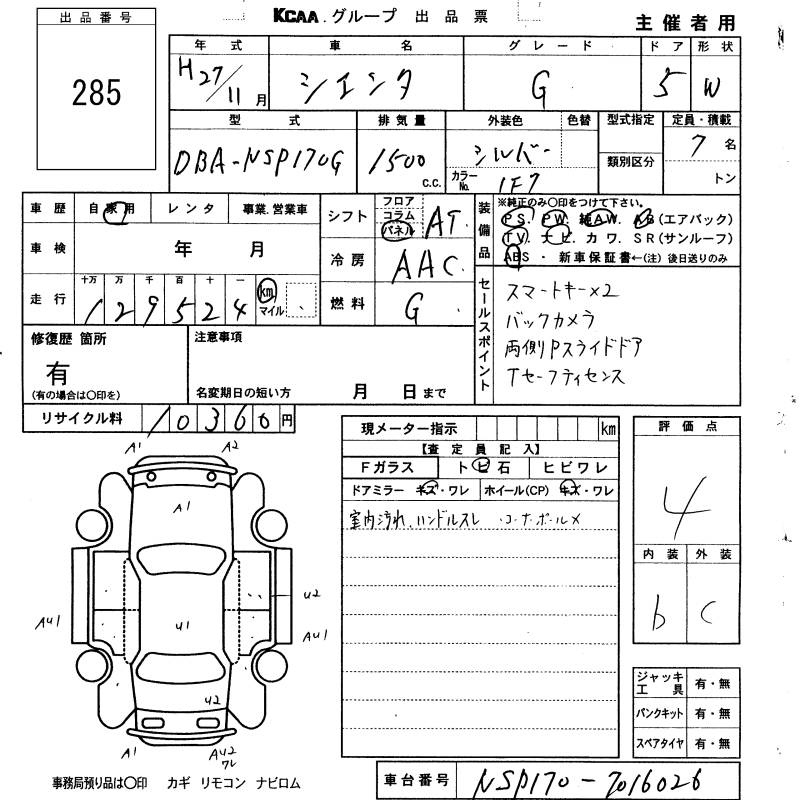 KCAA.グループ 出品票
主催者用
出品番号
285
年式 車名 グレード ドア 形状
H27/11月 シエンタ G 5 W
型式 排気量 外装色 色替 型式指定 定員・積載
DBA-NSP170G 1500 c.c. シルバー 7名
カラーNo. 1F7 類別区分 トン
車歴 自家用 レンタ 事業.営業車
シフト フロア コラム パネル AT
装備品
※純正のみ○印をつけて下さい。
PS. PW. 純AW. AB(エアバック)
TV. ナビ. カワ. SR(サンルーフ)
ABS ・ 新車保証書←(注)後日送りのみ
車検 年 月
冷房 AAC
走行 十万 万 千 百 十 一
129524 km マイル
燃料 G
セールスポイント
スマートキー×2
バックカメラ
両側Pスライドドア
Tセーフティセンス
修復歴 箇所
有
(有の場合は○印を)
注意事項
名変期日の短い方 月 日まで
リサイクル料 10360円
現メーター指示 km
【査定員記入】
Fガラス トビ石 ヒビワレ
ドアミラー キズ・ワレ ホイール(CP) キズ・ワレ
室内汚れ、ハンドルスレ ・コーナーポール×
評価点
4
内装 外装
b C
A1 A2
A1
U2
AU1 U1 AU1
U2
A1 AU2
ワレ
ジャッキ工具 有・無
パンクキット 有・無
スペアタイヤ 有・無
事務局預り品は○印 カギ リモコン ナビロム
車台番号 NSP170-7016026